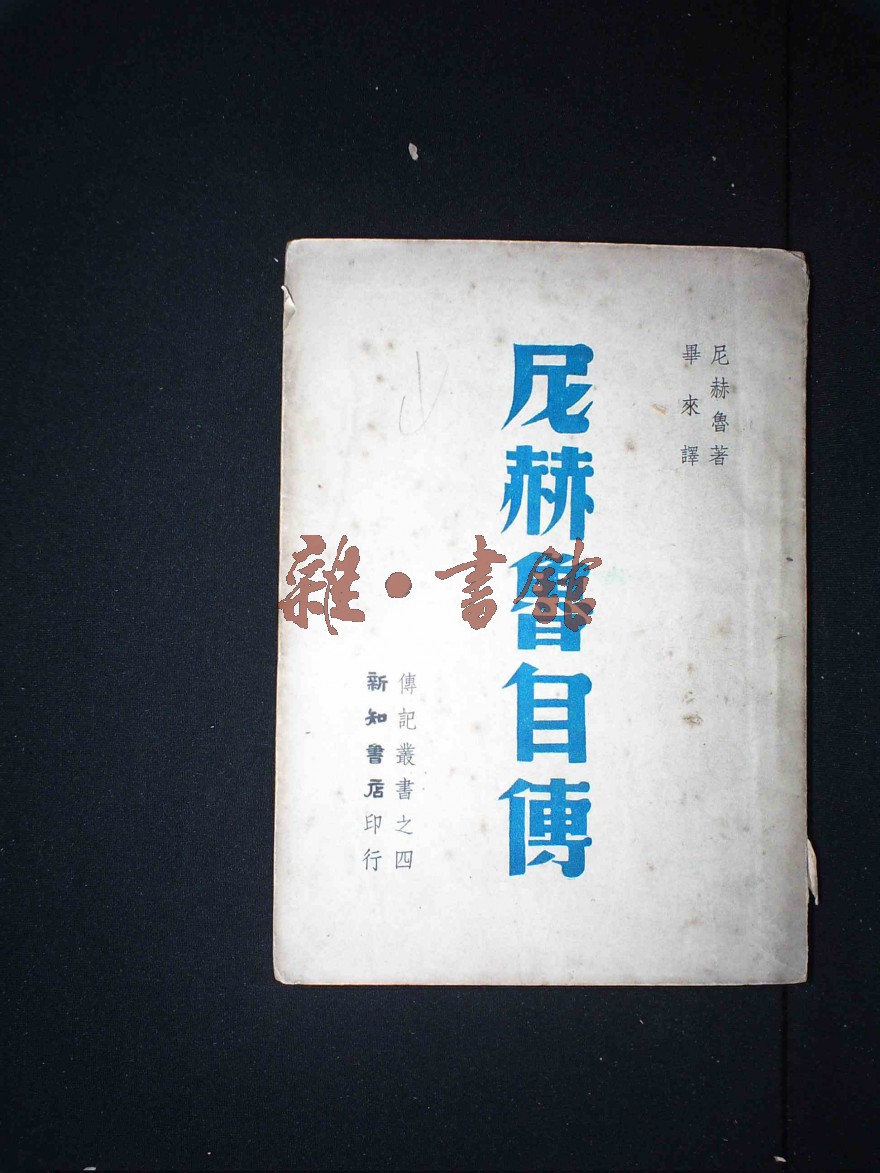 尼赫魯著
畢來譯
尼赫魯自傳
傳記叢書之四
新知書店印行
雜·書館